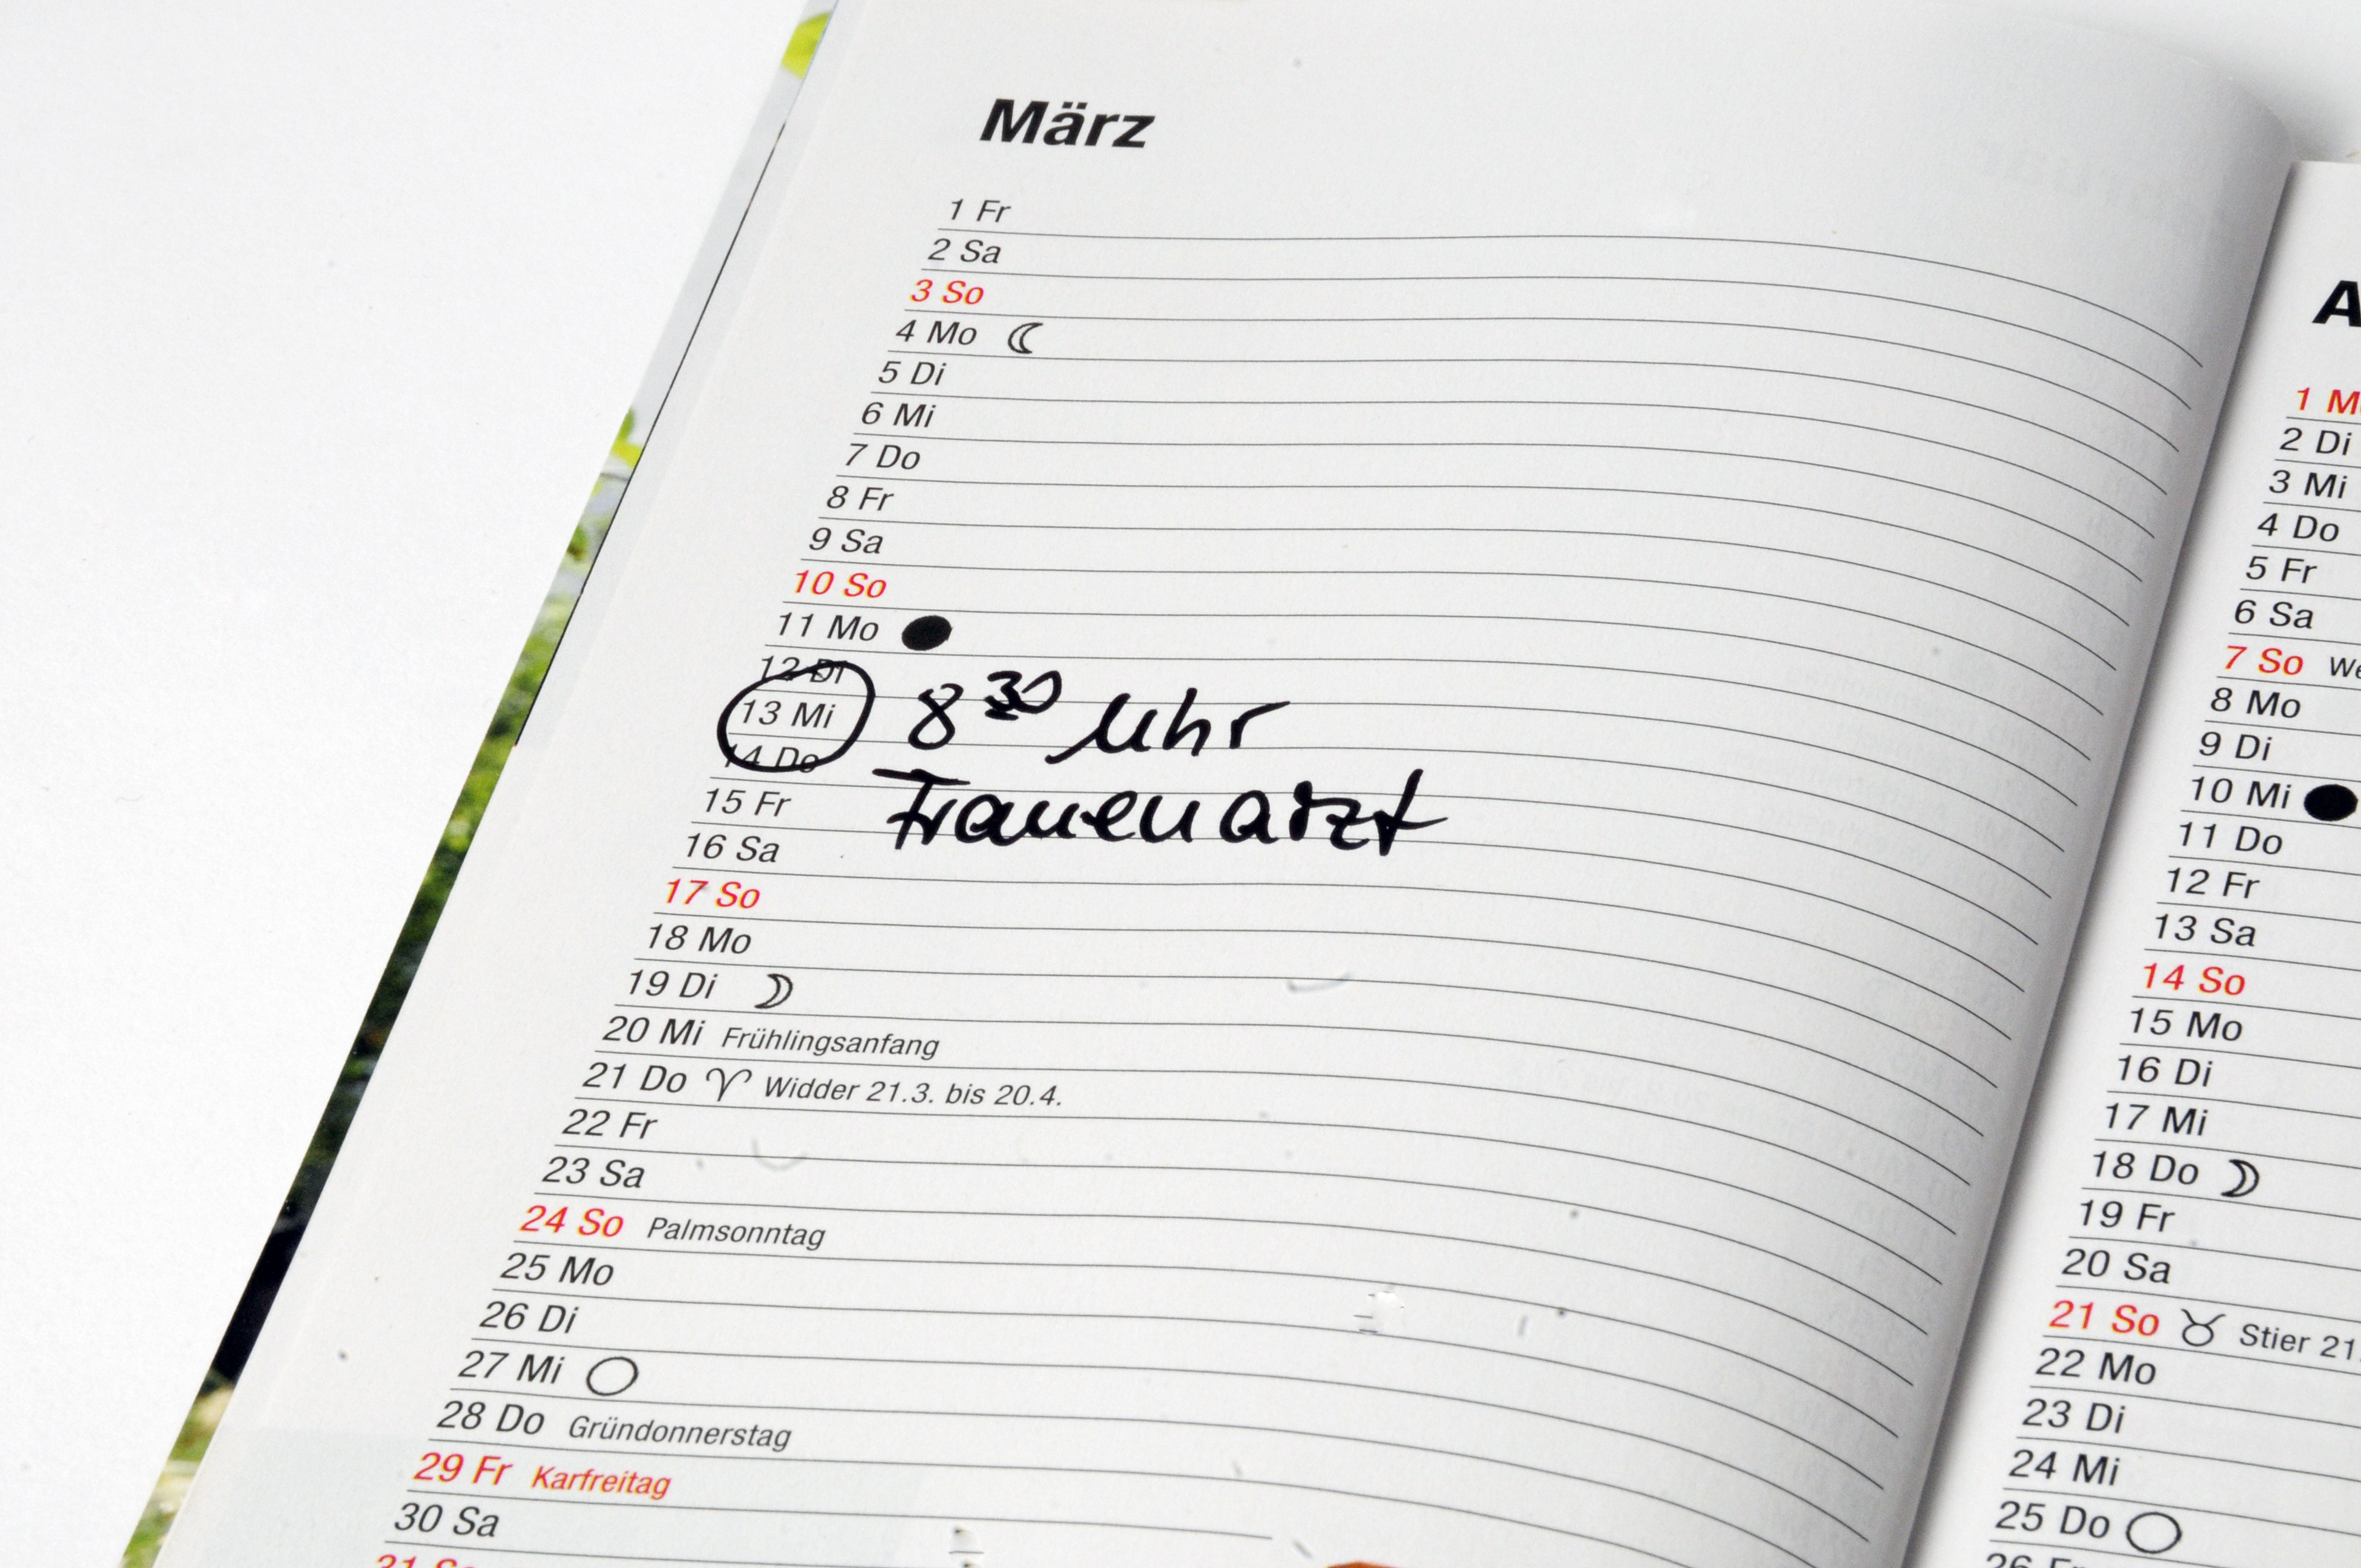 März
1 Fr
2 Sa
3 So
4 Mo
5 Di
6 Mi
7 Do
8 Fr
9 Sa
10 So
11 Mo
12 Di
13 Mi 8 30 Uhr
14 Do
Frauenarzt
15 Fr
16 Sa
17 So
18 Mo
19 Di
20 Mi Frühlingsanfang
21 Do ♈ Widder 21.3. bis 20.4.
22 Fr
23 Sa
24 So Palmsonntag
25 Mo
26 Di
27 Mi
28 Do Gründonnerstag
29 Fr Karfreitag
30 Sa
A
1 M
2 Di
3 Mi
4 Do
5 Fr
6 Sa
7 So We
8 Mo
9 Di
10 Mi
11 Do
12 Fr
13 Sa
14 So
15 Mo
16 Di
17 Mi
18 Do
19 Fr
20 Sa
21 So ♉ Stier 21.
22 Mo
23 Di
24 Mi
25 Do